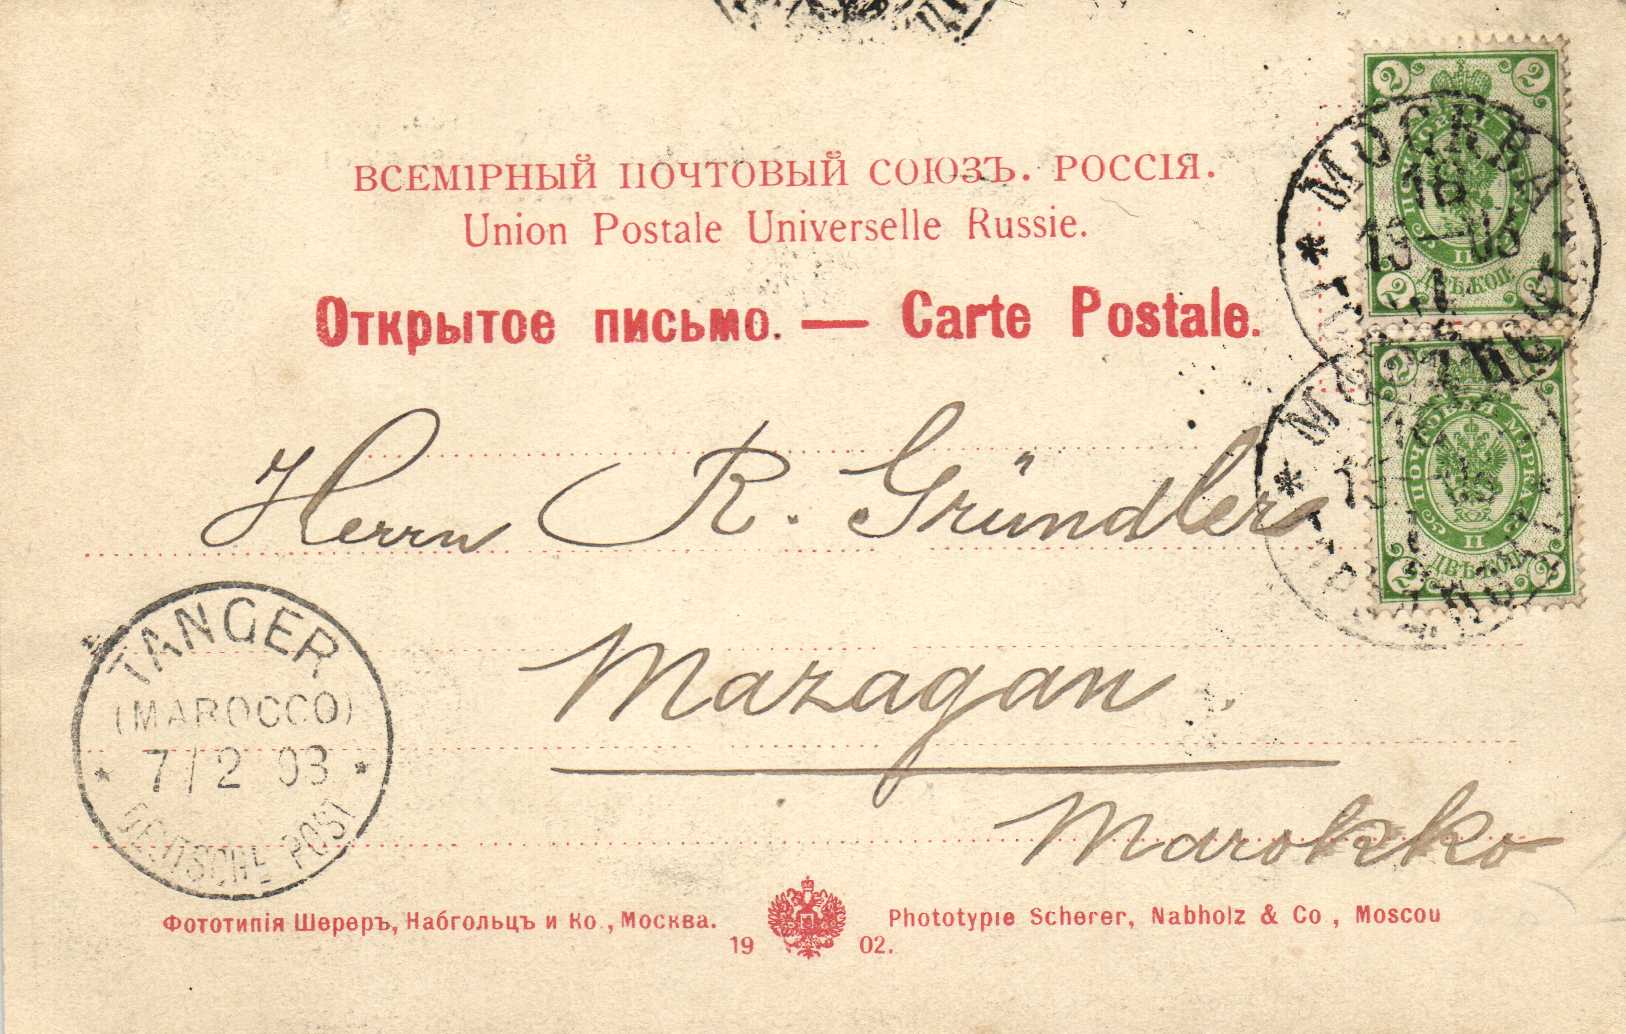 ВСЕМІРНЫЙ ПОЧТОВЫЙ СОЮЗЪ. РОССІЯ.
Union Postale Universelle Russie.
Открытое письмо. — Carte Postale.
2 2
ПОЧТОВАЯ МАРКА
2 ДВѢ КОП. 2
МОСКВА
18
2 2
ПОЧТОВАЯ МАРКА
2 ДВѢ КОП. 2
Herrn R. Gründler
Mazagan.
Marokko
TANGER
(MAROCCO)
* 7/2 03 *
DEUTSCHE POST
Фототипія Шереръ, Набгольцъ и Ко, Москва.
Phototypie Scherer, Nabholz & Co, Moscou
19 02.